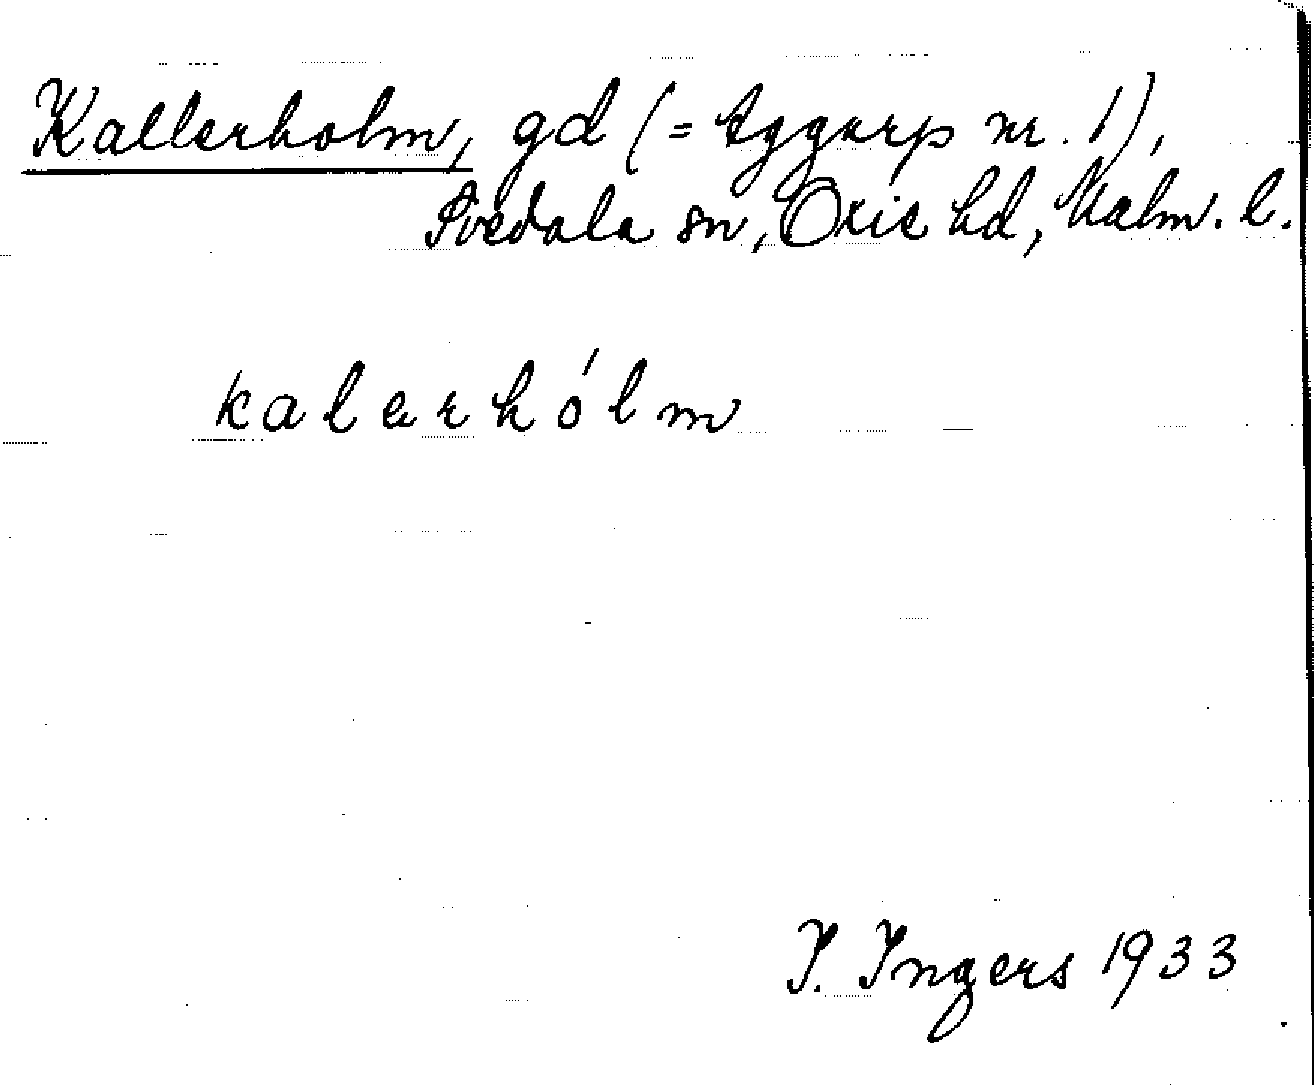 Kallerholm, gd (= Aggarp nr. 1),
Svedala sn, Oxie hd, Malm. l.
kalerhólm
I. Ingers 1933